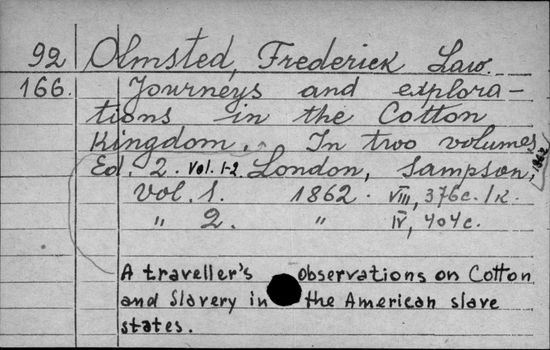 92 Olmsted, Frederick Law.
166. Journeys and explora-
tions in the Cotton
Kingdom. In two volumes
Ed. 2. Vol. 1-2. London, Sampson, 1862
Vol. 1. 1862. VIII, 376c. 1k.
" 2. " IV, 404c.
A traveller's observations on Cotton
and Slavery in the American slave
states.